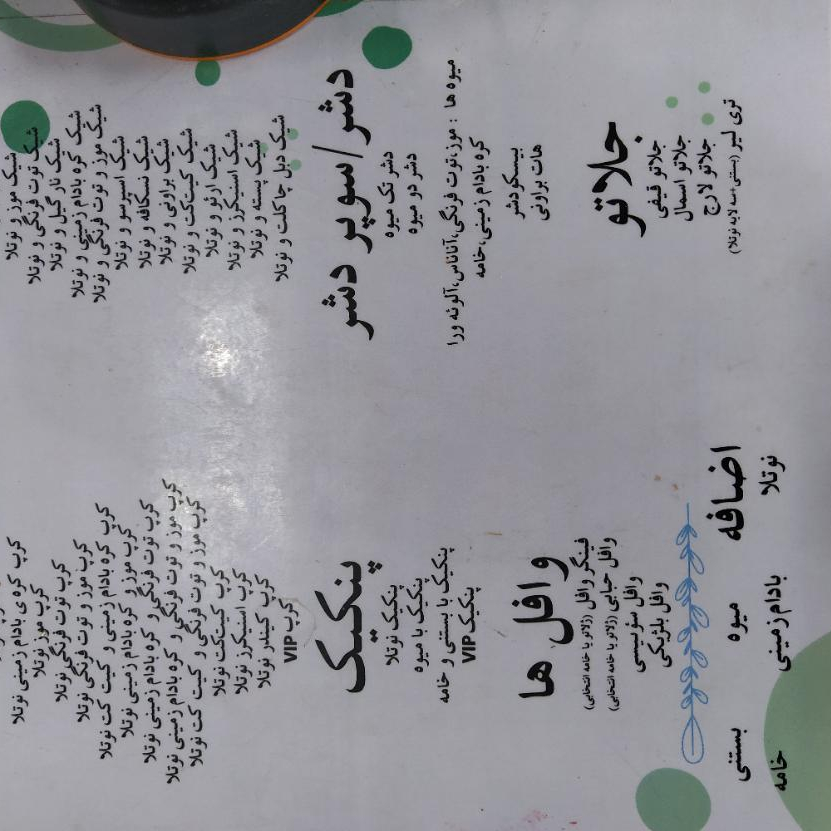 شیک موز و نوتلا
شیک توت فرنگی و نوتلا
شیک نارگیل و نوتلا
شیک کره بادام زمینی و نوتلا
شیک موز و توت فرنگی و نوتلا
شیک اسپرسو و نوتلا
شیک نسکافه و نوتلا
شیک براونی و نوتلا
شیک کیت‌کت و نوتلا
شیک ارئو و نوتلا
شیک اسنیکرز و نوتلا
شیک پسته و نوتلا
شیک دبل چاکلت و نوتلا
دسَر/سوپر دسر
دشر تک میوه
دشر دو میوه
میوه ها : موز،توت فرنگی،آناناس،آلوئه ورا
کره بادام زمینی،خامه
بیسکو دشر
هات براونی
جلاتو
جلاتو قیفی
جلاتو اسمال
جلاتو لارج
تری لیر (بستنی+سه لایه نوتلا)
کرپ کره ی بادام زمینی نوتلا
کرپ موز نوتلا
کرپ توت فرنگی نوتلا
کرپ موز و توت فرنگی نوتلا
کرپ کره بادام زمینی و کیت کت نوتلا
کرپ موز و کره بادام زمینی نوتلا
کرپ توت فرنگی و کره بادام زمینی نوتلا
کرپ موز و توت فرنگی و کره بادام زمینی نوتلا
کرپ موز و توت فرنگی و کیت کت نوتلا
کرپ کیت‌کت نوتلا
کرپ اسنیکرز نوتلا
کرپ کیندر نوتلا
کرپ VIP
پنکیک
پنکیک نوتلا
پنکیک با میوه
پنکیک با بستنی و خامه
پنکیک VIP
وافل ها
فینگر وافل (ژلاتو یا خامه انتخابی)
وافل حبابی (ژلاتو یا خامه انتخابی)
وافل سوئیسی
وافل بلژیکی
اضافه
بستنی میوه نوتلا
خامه بادام‌زمینی